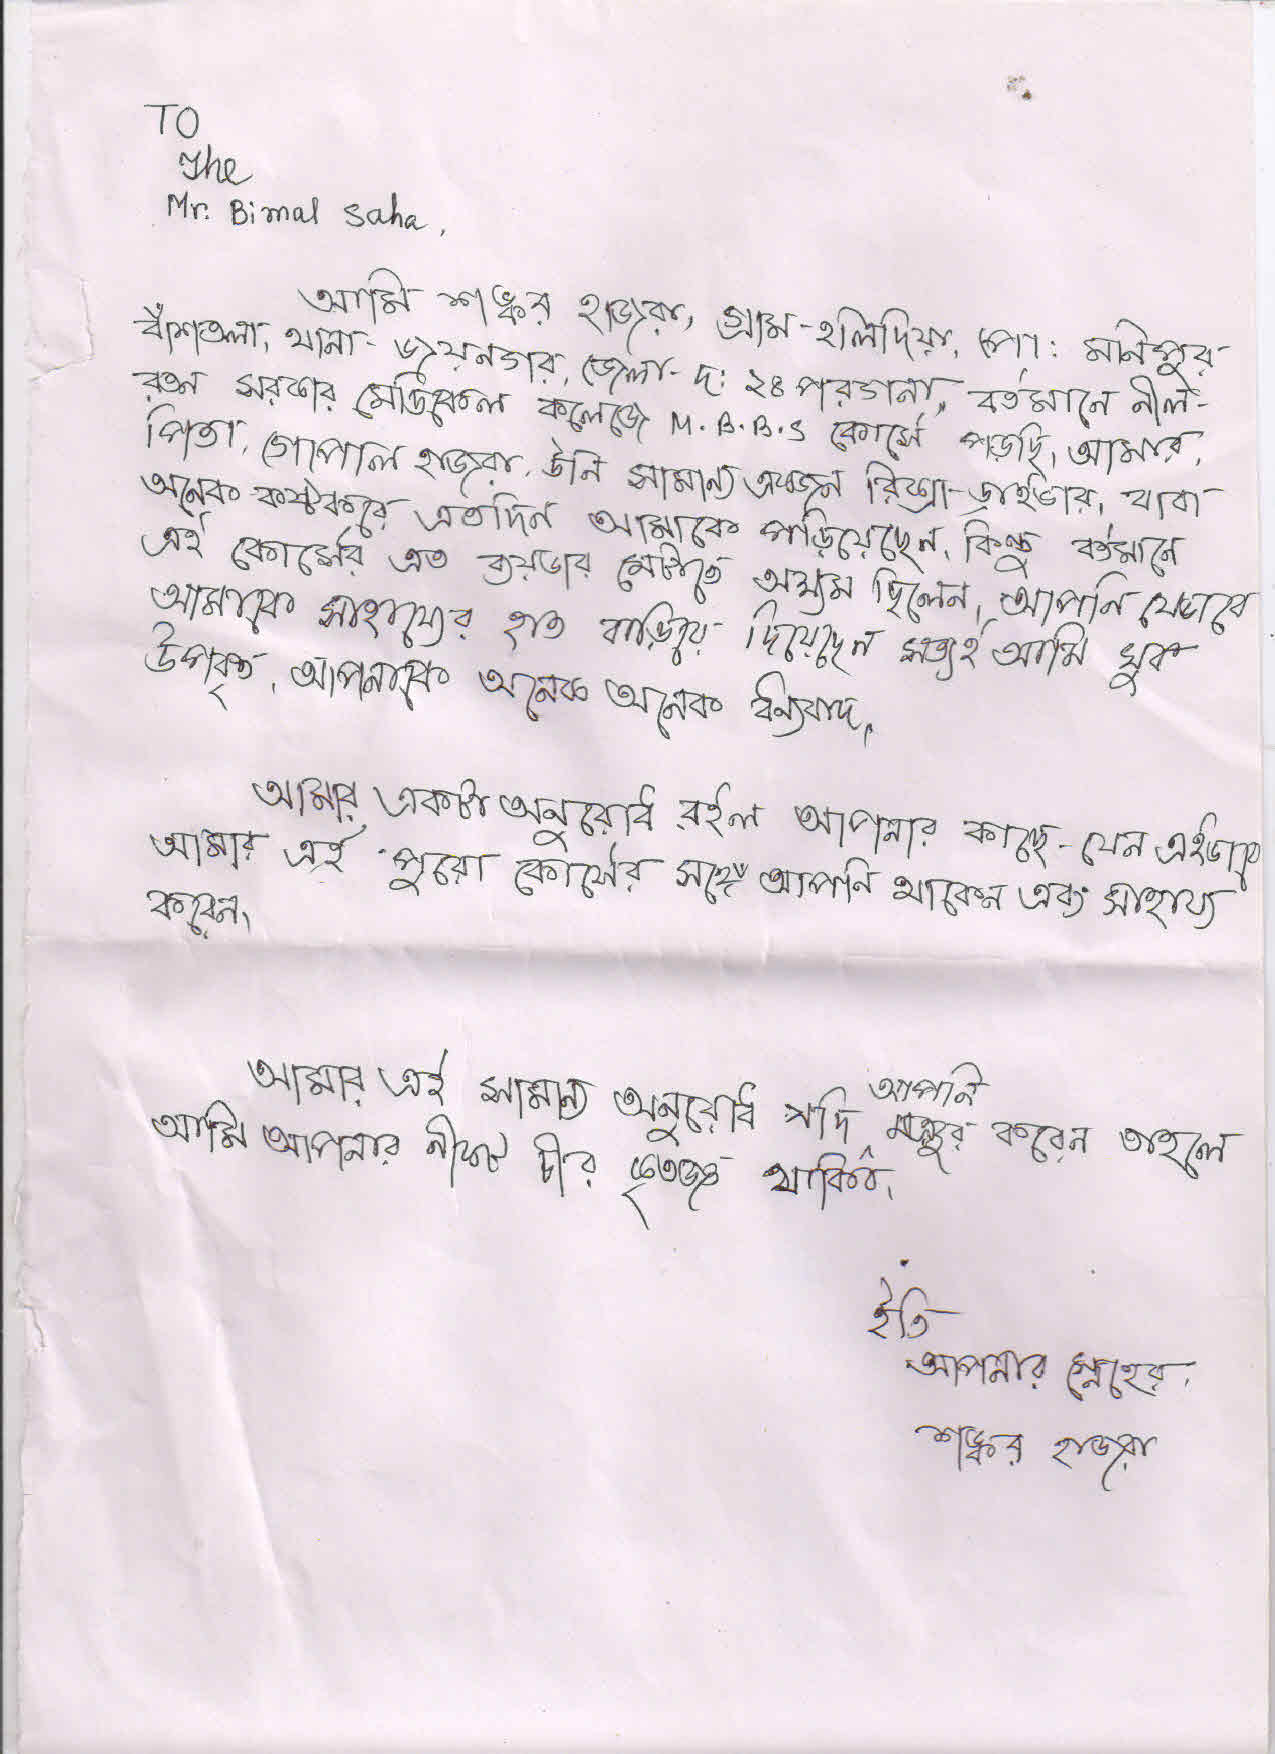 TO
The
Mr. Bimal Saha,
আমি শঙ্কর হাজরা, গ্রাম-হলিদিয়া, পো: মনিপুর
বাঁশতলা, থানা- জয়নগর, জেলা- দ: ২৪ পরগনা, বর্তমানে নীল-
রতন সরকার মেডিকেল কলেজে M.B.B.S কোর্সে পড়ছি, আমার,
পিতা, গোপাল হাজরা, উনি সামান্য একজন রিক্সা-ড্রাইভার, বাবা
অনেক কষ্টকরে এতদিন আমাকে পড়িয়েছেন, কিন্তু বর্তমানে
এই কোর্সের এত ব্যয়ভার মেটাতে অক্ষম ছিলেন, আপনি যেভাবে
আমাকে সাহায্যের হাত বাড়িয়ে দিয়েছেন সত্যই আমি খুব
উপকৃত, আপনাকে অনেক অনেক ধন্যবাদ,
আমার একটা অনুরোধ রইল আপনার কাছে- যেন এইভাবে
আমার এই পুরো কোর্সের সঙ্গে আপনি থাকেন এবং সাহায্য
করেন,
আমার এই সামান্য অনুরোধ যদি আপনি মঞ্জুর করেন তাহলে
আমি আপনার নীকট চীর কৃতজ্ঞ থাকিব,
ইতি
আপনার স্নেহের,
শঙ্কর হাজরা